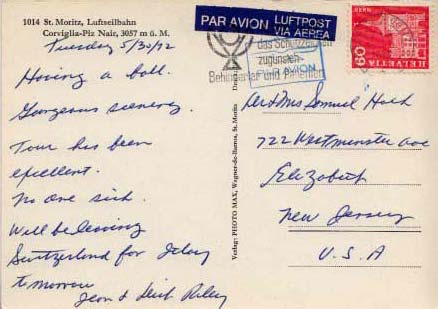 1014 St. Moritz, Luftseilbahn
Corviglia-Piz Nair, 3057 m ü. M.
Tuesday 5/30/72
Having a ball.
Gorgeous scenery.
Tour has been
excellent.
No one sick.
Will be leaving
Switzerland for Italy
tomorrow
Jean & Reily
PAR AVION
LUFTPOST
VIA AEREA
das Schutzzeichen
zugunsten
Behinderter und Betagter
PAR AVION
HELVETIA
60
BERN
Verlag: PHOTO MAX, Wagner-de-Barros, St. Moritz
Mrs Samuel
722 Westminster Ave
Elizabeth
New Jersey
U.S.A